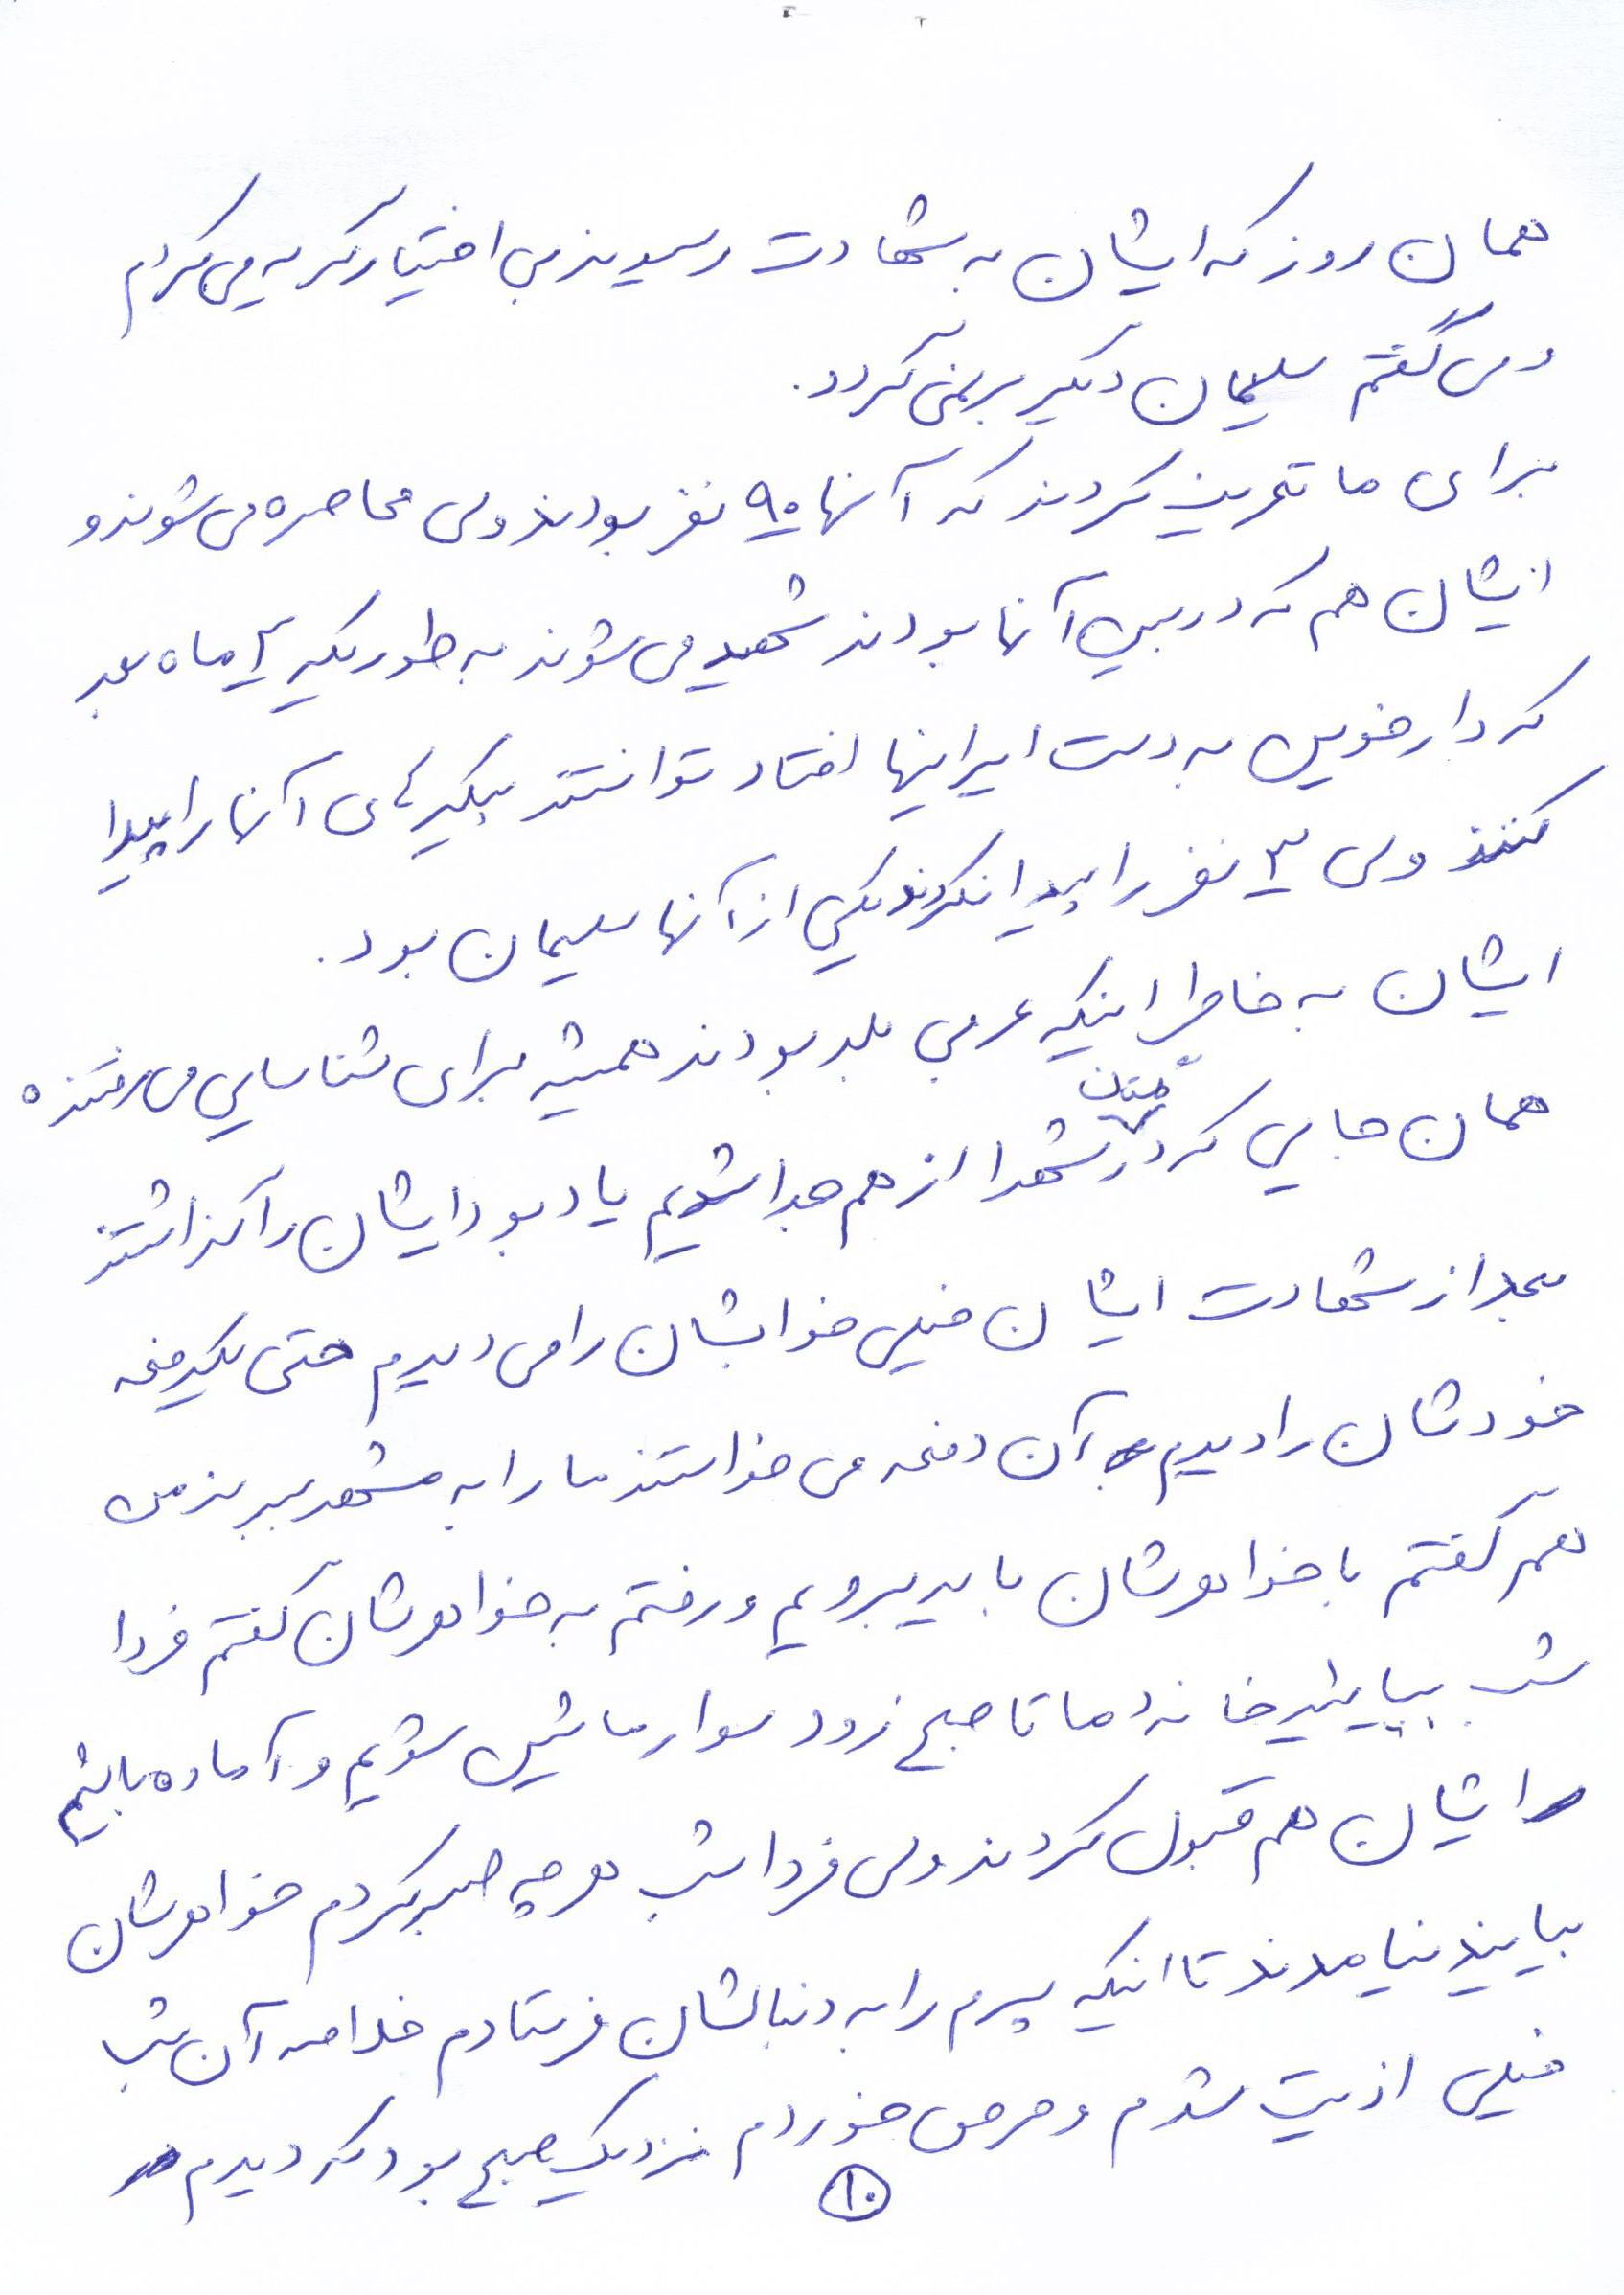 همان روز که ایشان به شهادت رسیدند بی اختیار گریه می کردم
و می گفتم سلیمان دیگر بر نمی گردد.
برای ما تعریف کردند که آنها ۹۰ نفر بودند ولی محاصره می شوند و
ایشان هم که در بین آنها بودند شهید می شوند به طوریکه ۲ ماه بعد
که دارخوین به دست ایرانیها افتاد توانستند پیکرهای آنها را پیدا
کنند ولی ۳ نفر را پیدا نکردند یکی از آنها سلیمان بود.
ایشان به خاطر اینکه عربی بلد بودند همیشه برای شناسایی می رفتند
همان جایی که در شهدا از هم جدا شدیم یادبود ایشان را گذاشتند
بعد از شهادت ایشان خیلی خوابشان را می دیدم حتی یکدفعه
خودشان را دیدم آن دفعه می خواستند ما را به مشهد ببرند من
هم گفتم با خواهرشان باید برویم و رفتم به خواهرشان گفتم فردا
شب بیایید خانه ما تا صبح زود سوار ماشین شویم و آماده باشیم
ایشان هم قبول کردند ولی فردا شب هر چه صبر کردم خواهرشان
بیایند نیامدند تا اینکه پسرم را به دنبالشان فرستادم خلاصه آن شب
خیلی اذیت شدم و حرص خوردم نزدیک صبح بود که دیدم
۱۰